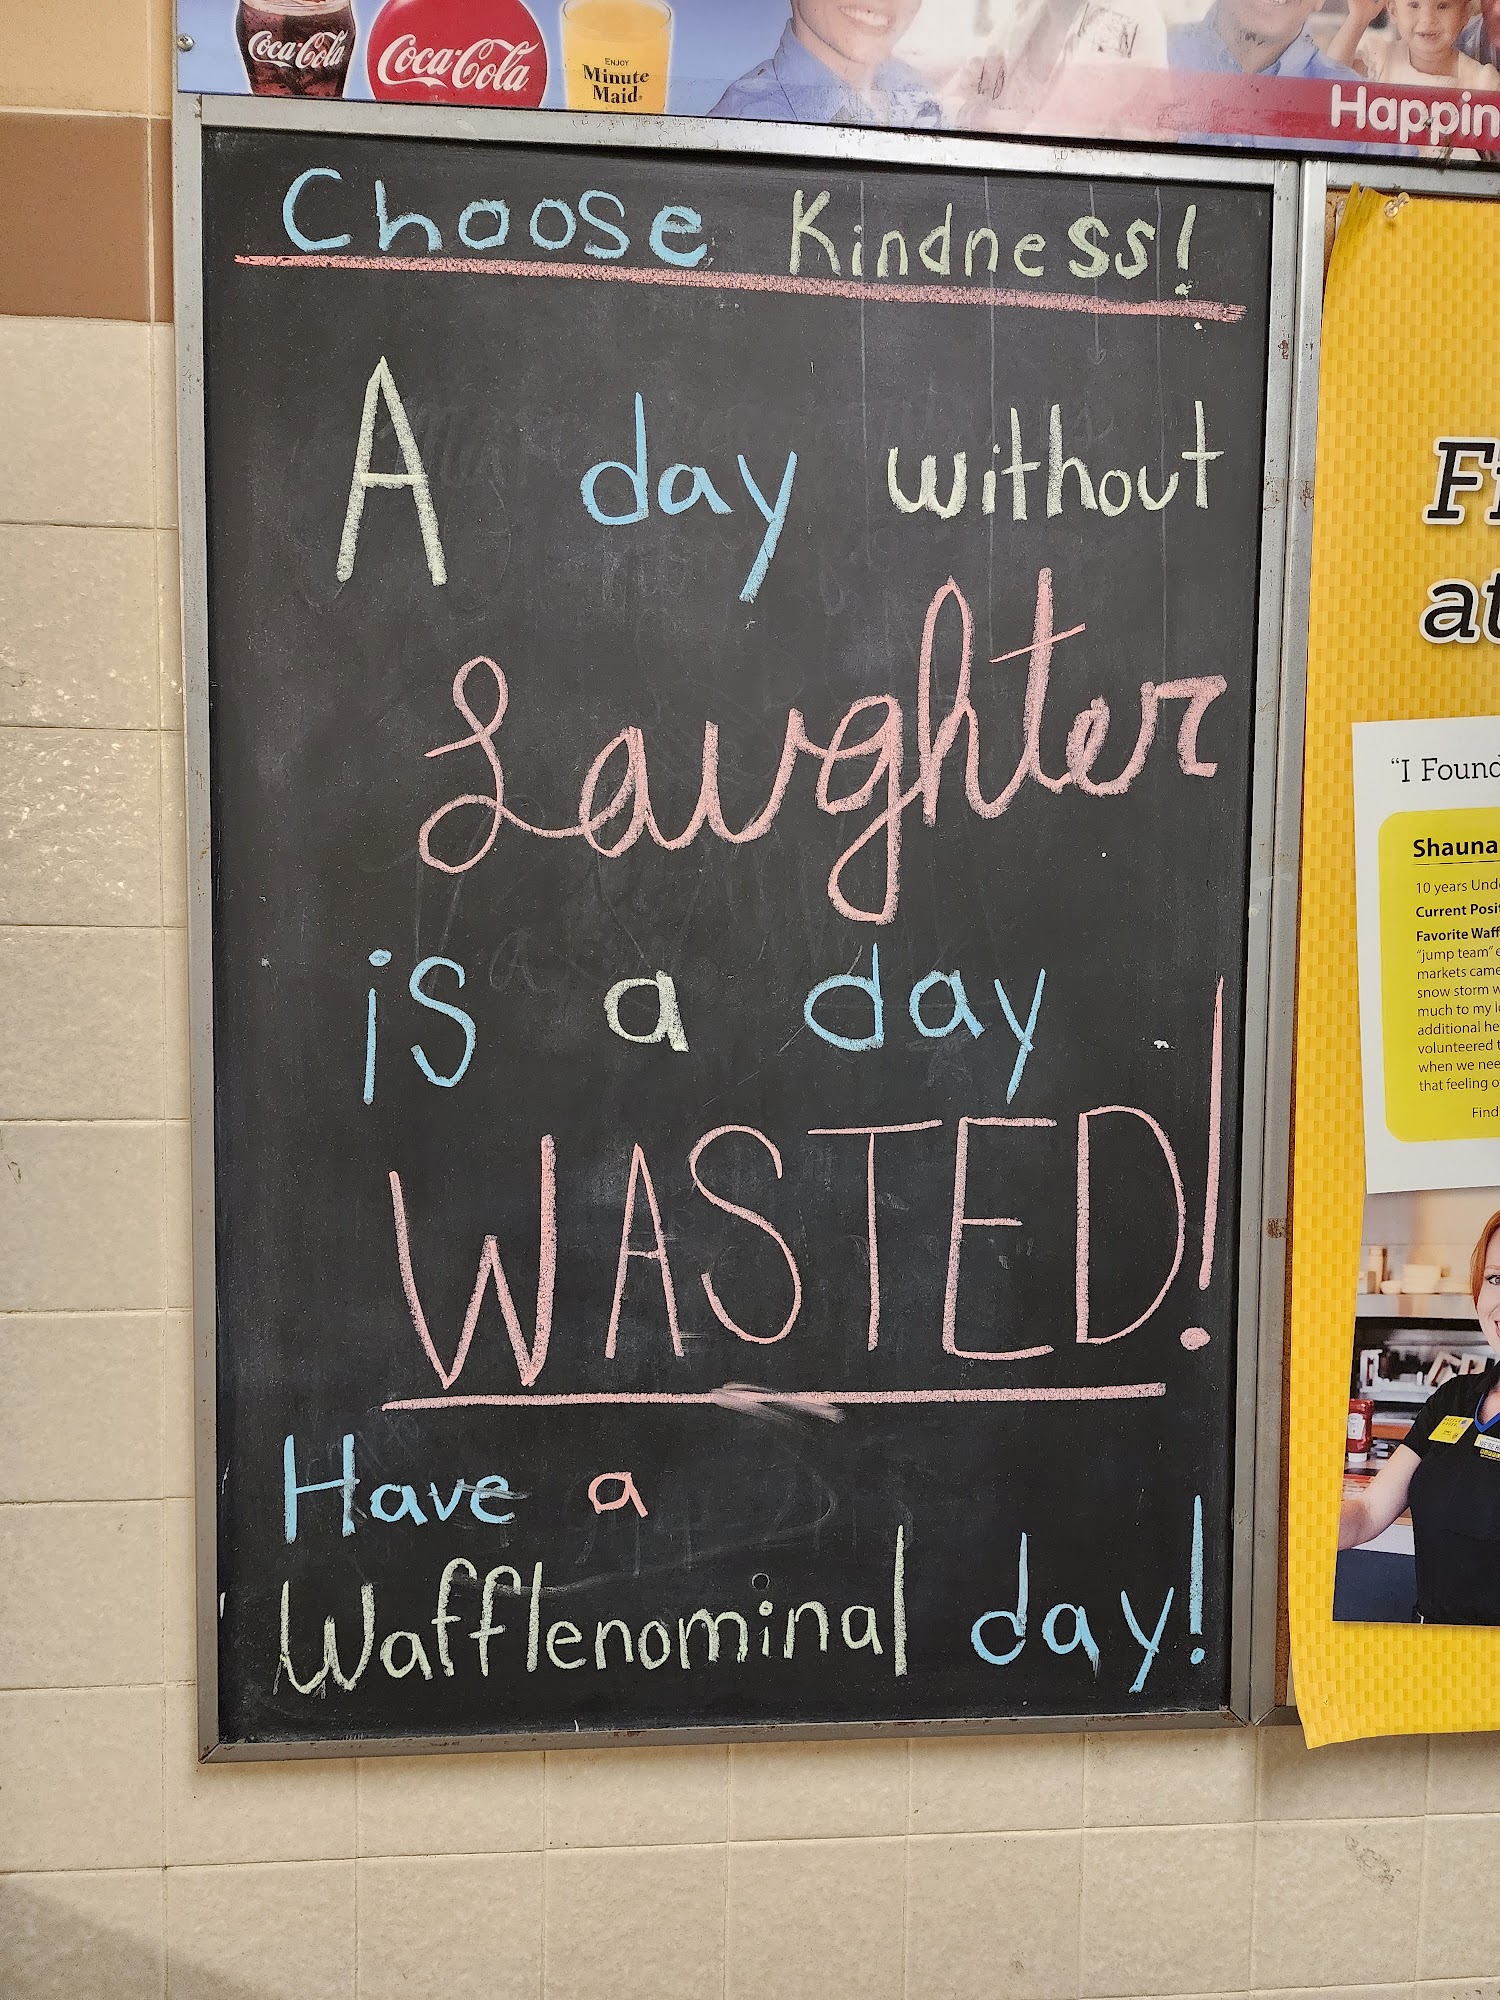 Coca-Cola
Coca-Cola
ENJOY
Minute
Maid
Happin
Choose Kindness!
A day without
Laughter
is a day
WASTED!
Have a
Wafflenominal day!
at
"I Found
Shauna
10 years Und
Current Posit
Favorite Waff
"jump team"
markets came
snow storm w
much to my l
additional he
volunteered t
when we nee
that feeling o
Find